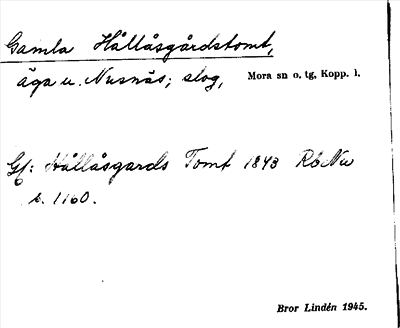 Gamla Hållåsgårdstomt,
äga u. Nusnäs; slog, Mora sn o. tg, Kopp. l.
Gf: Hållåsgards Tomt 1843 RöNu
s. 1160.
Bror Lindén 1945.